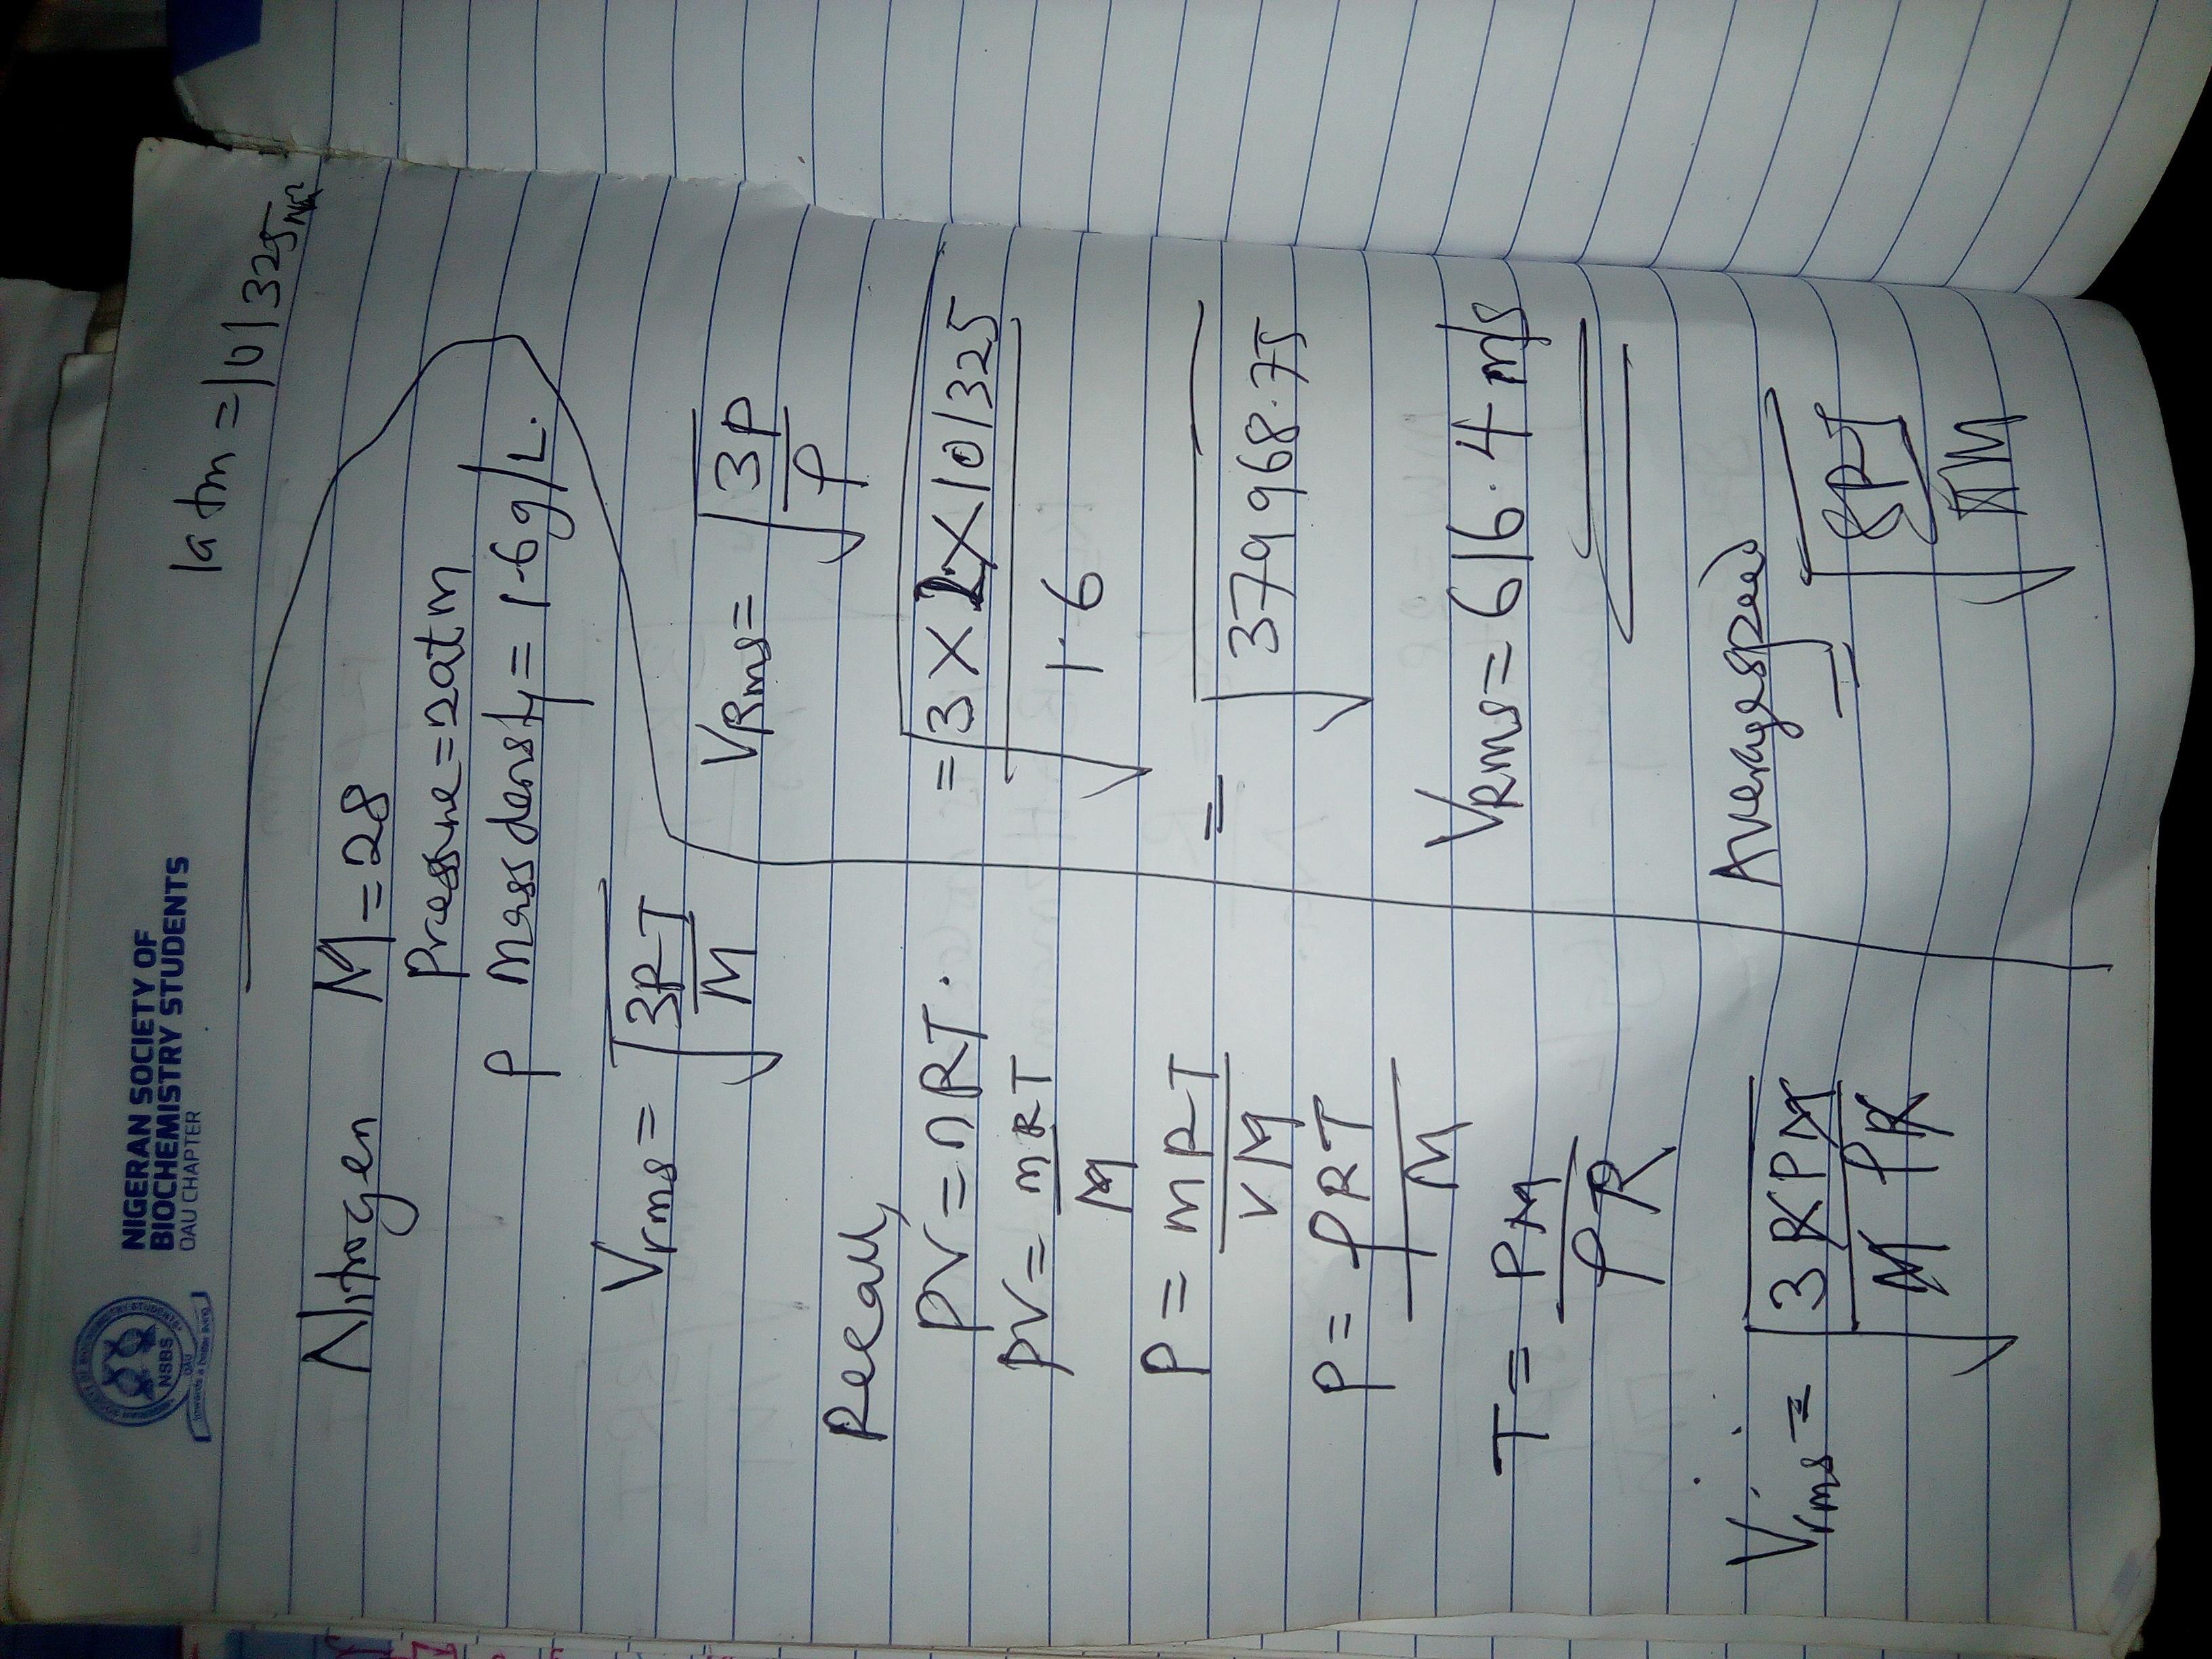 NIGERAN SOCIETY OF
BIOCHEMISTRY STUDENTS
OAU CHAPTER
NSBS
OAU
Towards a better living
1atm = 101325Nm²
Nitrogen M = 28
Pressure = 2atm
ρ Mass density = 1.6g/L.
Vrms = √3RT/M
Recall,
PV = nRT.
PV = mRT/M
P = mRT/VM
P = ρRT/M
T = PM/ρR
Vrms = √3RPM/MρR
VRms = √3P/ρ
= √3 X 2 X 101325/1.6
= √379968.75
VRms = 616.4 m/s
Average speed
= √8RT/πM